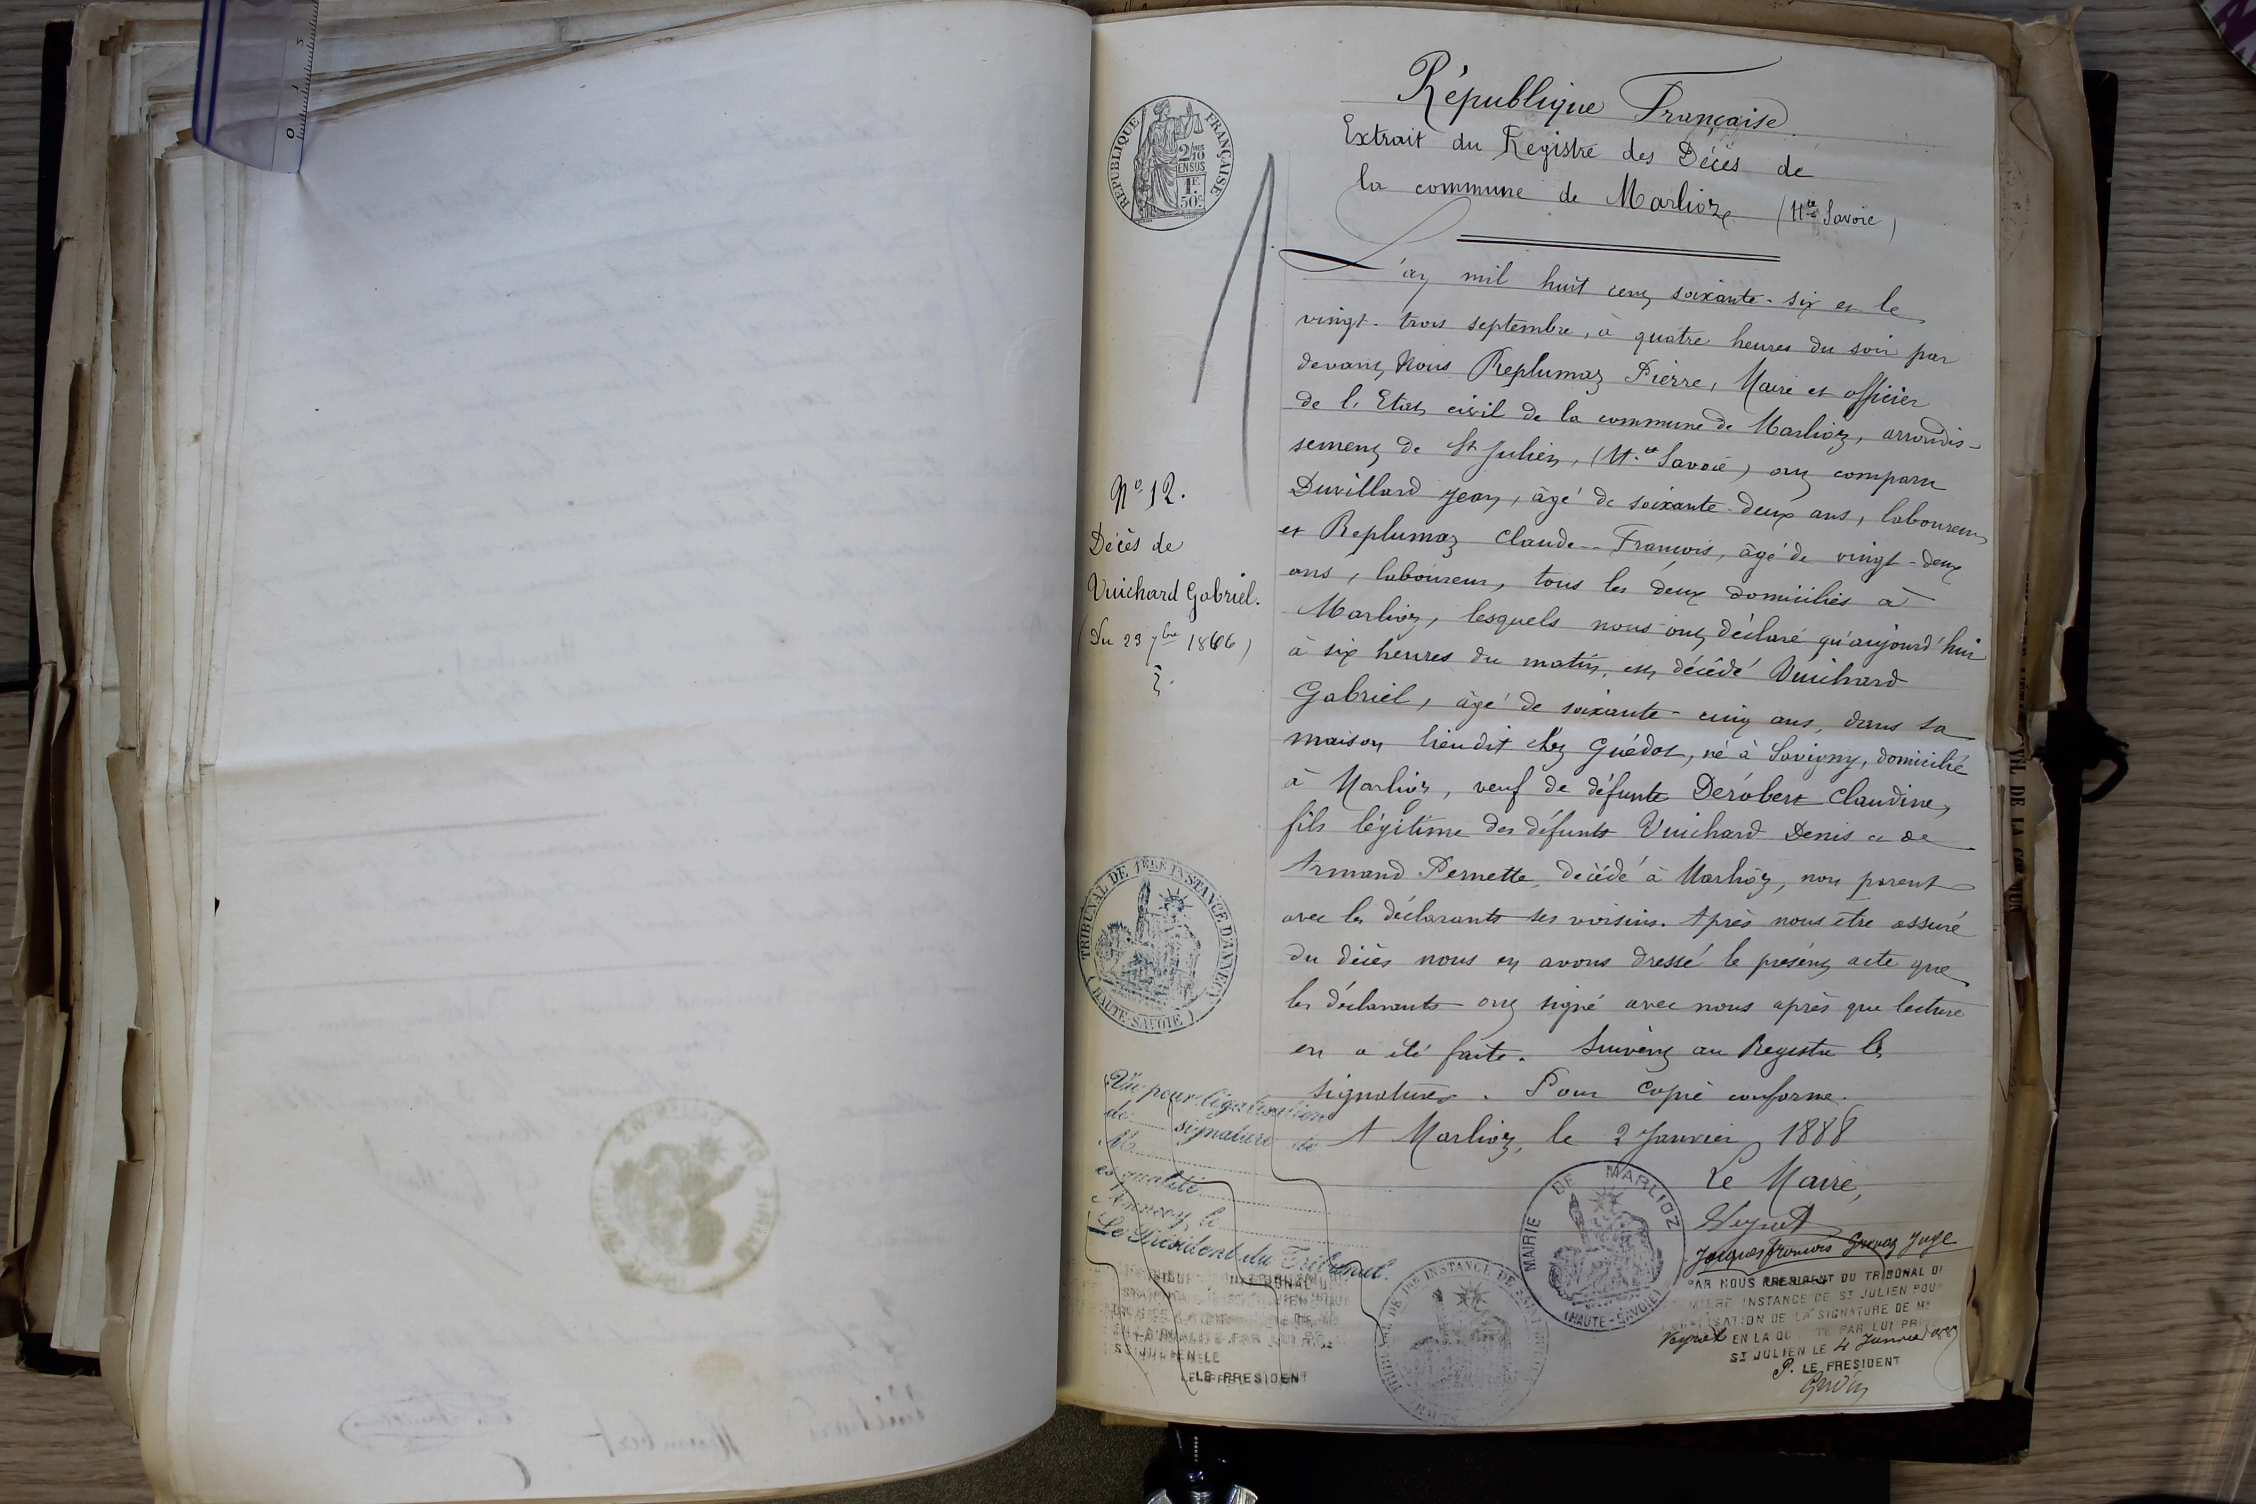 République Française
Extrait du Registre des Décès de
la commune de Marlioz (Hte Savoie)
RÉPUBLIQUE FRANÇAISE
2/10
EN SUS
1F
50c
L'an mil huit cent soixante-six et le
vingt-trois septembre, à quatre heures du soir par
devant Nous Replumaz Pierre, Maire et officier
de l'Etat civil de la commune de Marlioz, arrondis-
sement de St Julien, (Hte Savoie) ont comparu
Duvillard Jean, âgé de soixante-deux ans, laboureur
et Replumaz Claude-François, âgé de vingt-deux
ans, laboureur, tous les deux domiciliés à
Marlioz, lesquels nous ont déclaré qu'aujourd'hui
à six heures du matin, est décédé Vuichard
Gabriel, âgé de soixante-cinq ans, dans sa
maison lieudit chez Guédot, né à Savigny, domicilié
à Marlioz, veuf de défunte Dérobert Claudine,
fils légitime des défunts Vuichard Denis et de
Armand Pernette, décédé à Marlioz, non parent
avec les déclarants ses voisins. Après nous être assuré
du décès nous en avons dressé le présent acte que
les déclarants ont signé avec nous après que lecture
en a été faite. Suivent au Registre les
signatures. Pour copie conforme.
A Marlioz, le 2 Janvier 1888
Le Maire,
Veyrat
Jacques François Juge
No 12.
Décès de
Vuichard Gabriel.
(Du 23 7bre 1866)
TRIBUNAL DE 1ERE INSTANCE D'ANNECY
(HAUTE-SAVOIE)
Vu pour légalisation
de signature de
M
ès qualité
Annecy, le
Le Président du Tribunal.
ST JULIEN LE
LE PRESIDENT
MAIRIE DE MARLIOZ
(HAUTE-SAVOIE)
PAR NOUS PRESIDENT DU TRIBUNAL DE
INSTANCE DE ST JULIEN POUR
LEGALISATION DE LA SIGNATURE DE MR
Veyrat EN LA QUALITE PAR LUI PRISE
ST JULIEN LE 4 Janvier 1888
P. LE PRESIDENT